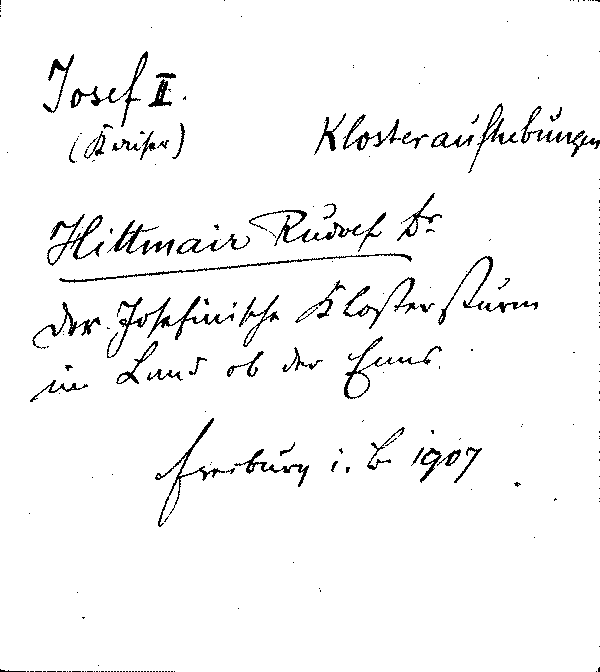 Josef II. Klosteraufhebungen
(Kaiser)
Hittmair Rudolf Dr
Der Josefinische Klostersturm
im Land ob der Enns.
Freiburg i. B. 1907